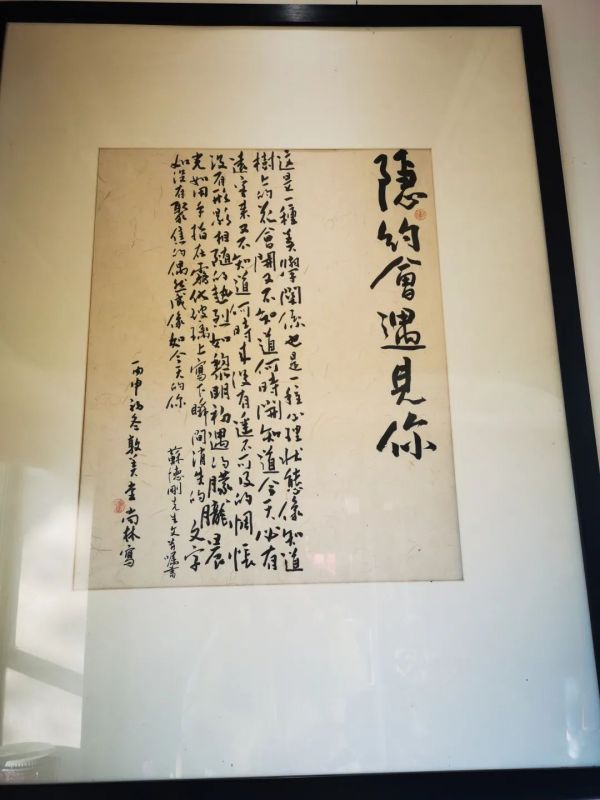 隐約會遇見你
这是一種美學關係也是一種心理狀態像知道
樹上的花會開又不知道何時開知道今天必有
遠客來又不知道何時來没有遥不可及的惆悵
没有形影相隨的熱烈如黎明初遇的朦朧晨
光如用手指在霧化玻璃上寫下瞬間消失的文字
如没有聚焦的偶然成像如今天的你
蘇德剛先生文囑書
丙申初冬敦美堂尚林寫